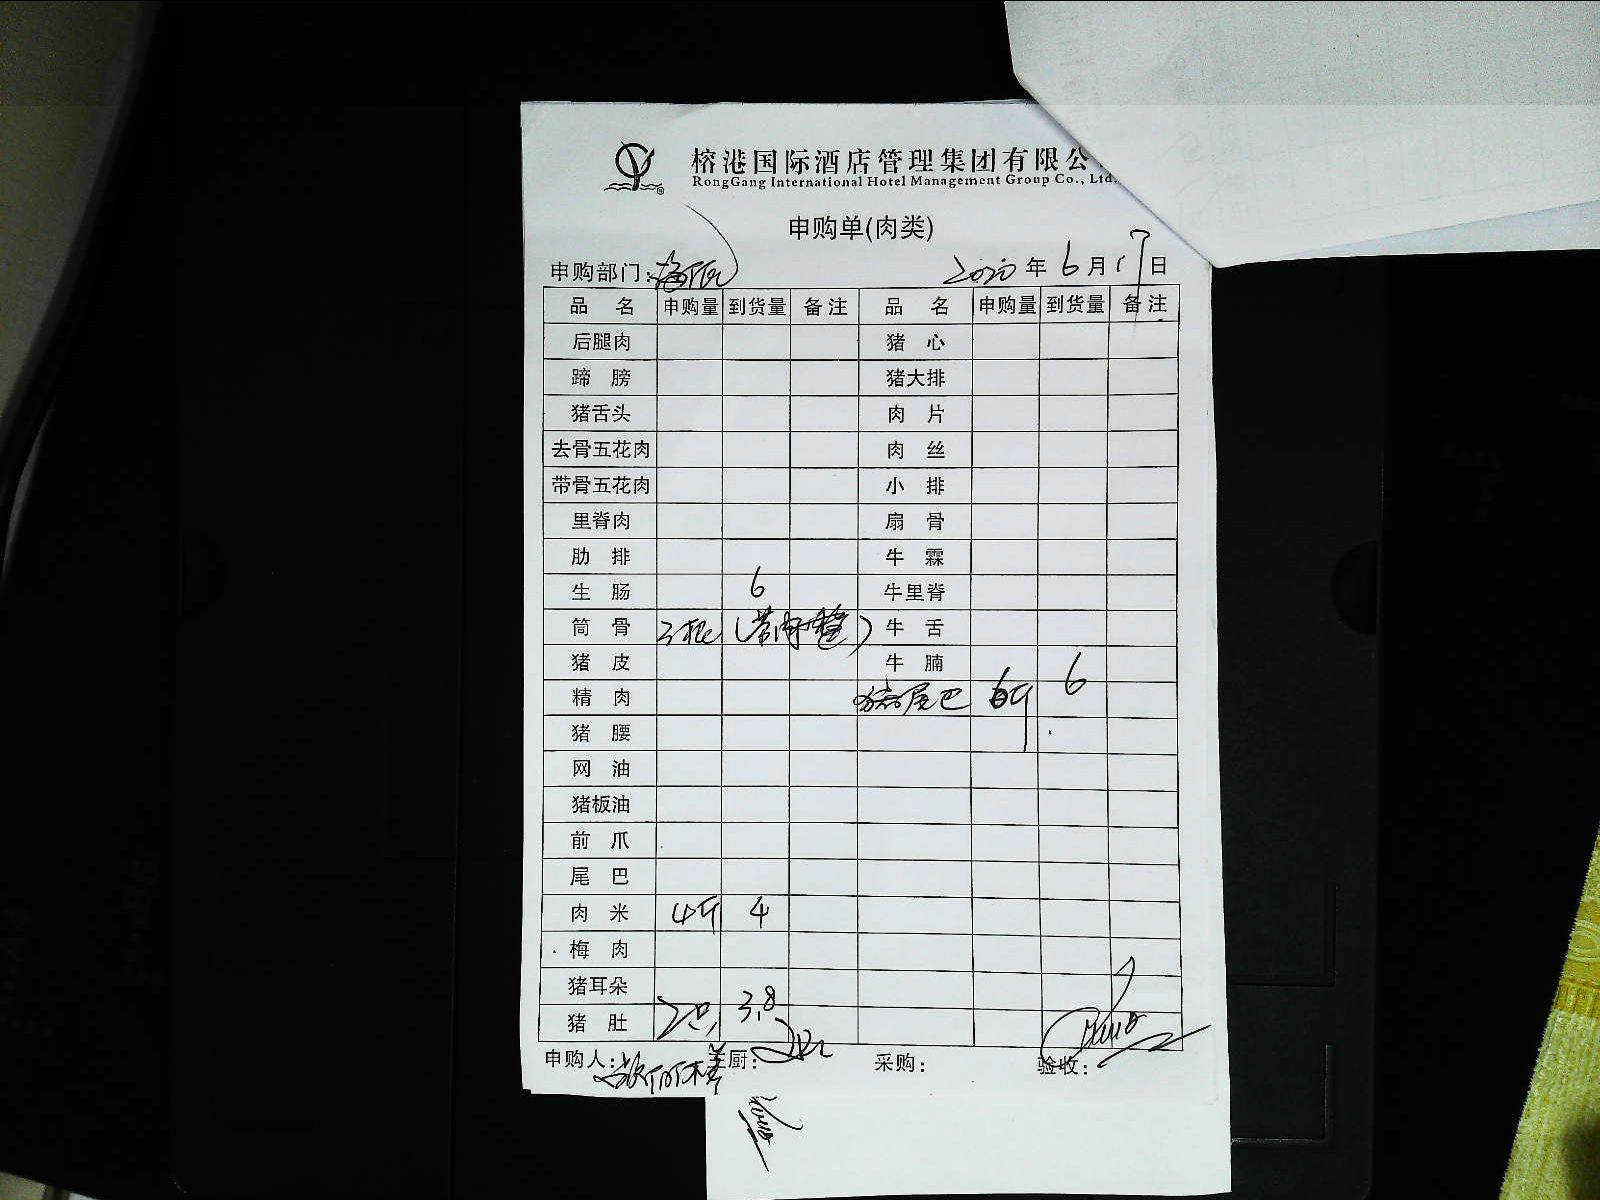 榕港国际酒店管理集团有限公
RongGang International Hotel Management Group Co., Ltd.
申购单(肉类)
申购部门: 2020 年 6 月 17 日
品 名 申购量 到货量 备注 品 名 申购量 到货量 备注
后腿肉 猪 心
蹄 膀 猪大排
猪舌头 肉 片
去骨五花肉 肉 丝
带骨五花肉 小 排
里脊肉 扇 骨
肋 排 牛 霖
生 肠 6 牛里脊
筒 骨 3根 牛 舌
猪 皮 牛 腩
精 肉 猪尾巴 6斤 6
猪 腰
网 油
猪板油
前 爪
尾 巴
肉 米 4斤 4
梅 肉
猪耳朵
猪 肚 2只 3.8
申购人: 主厨: 采购: 验收: